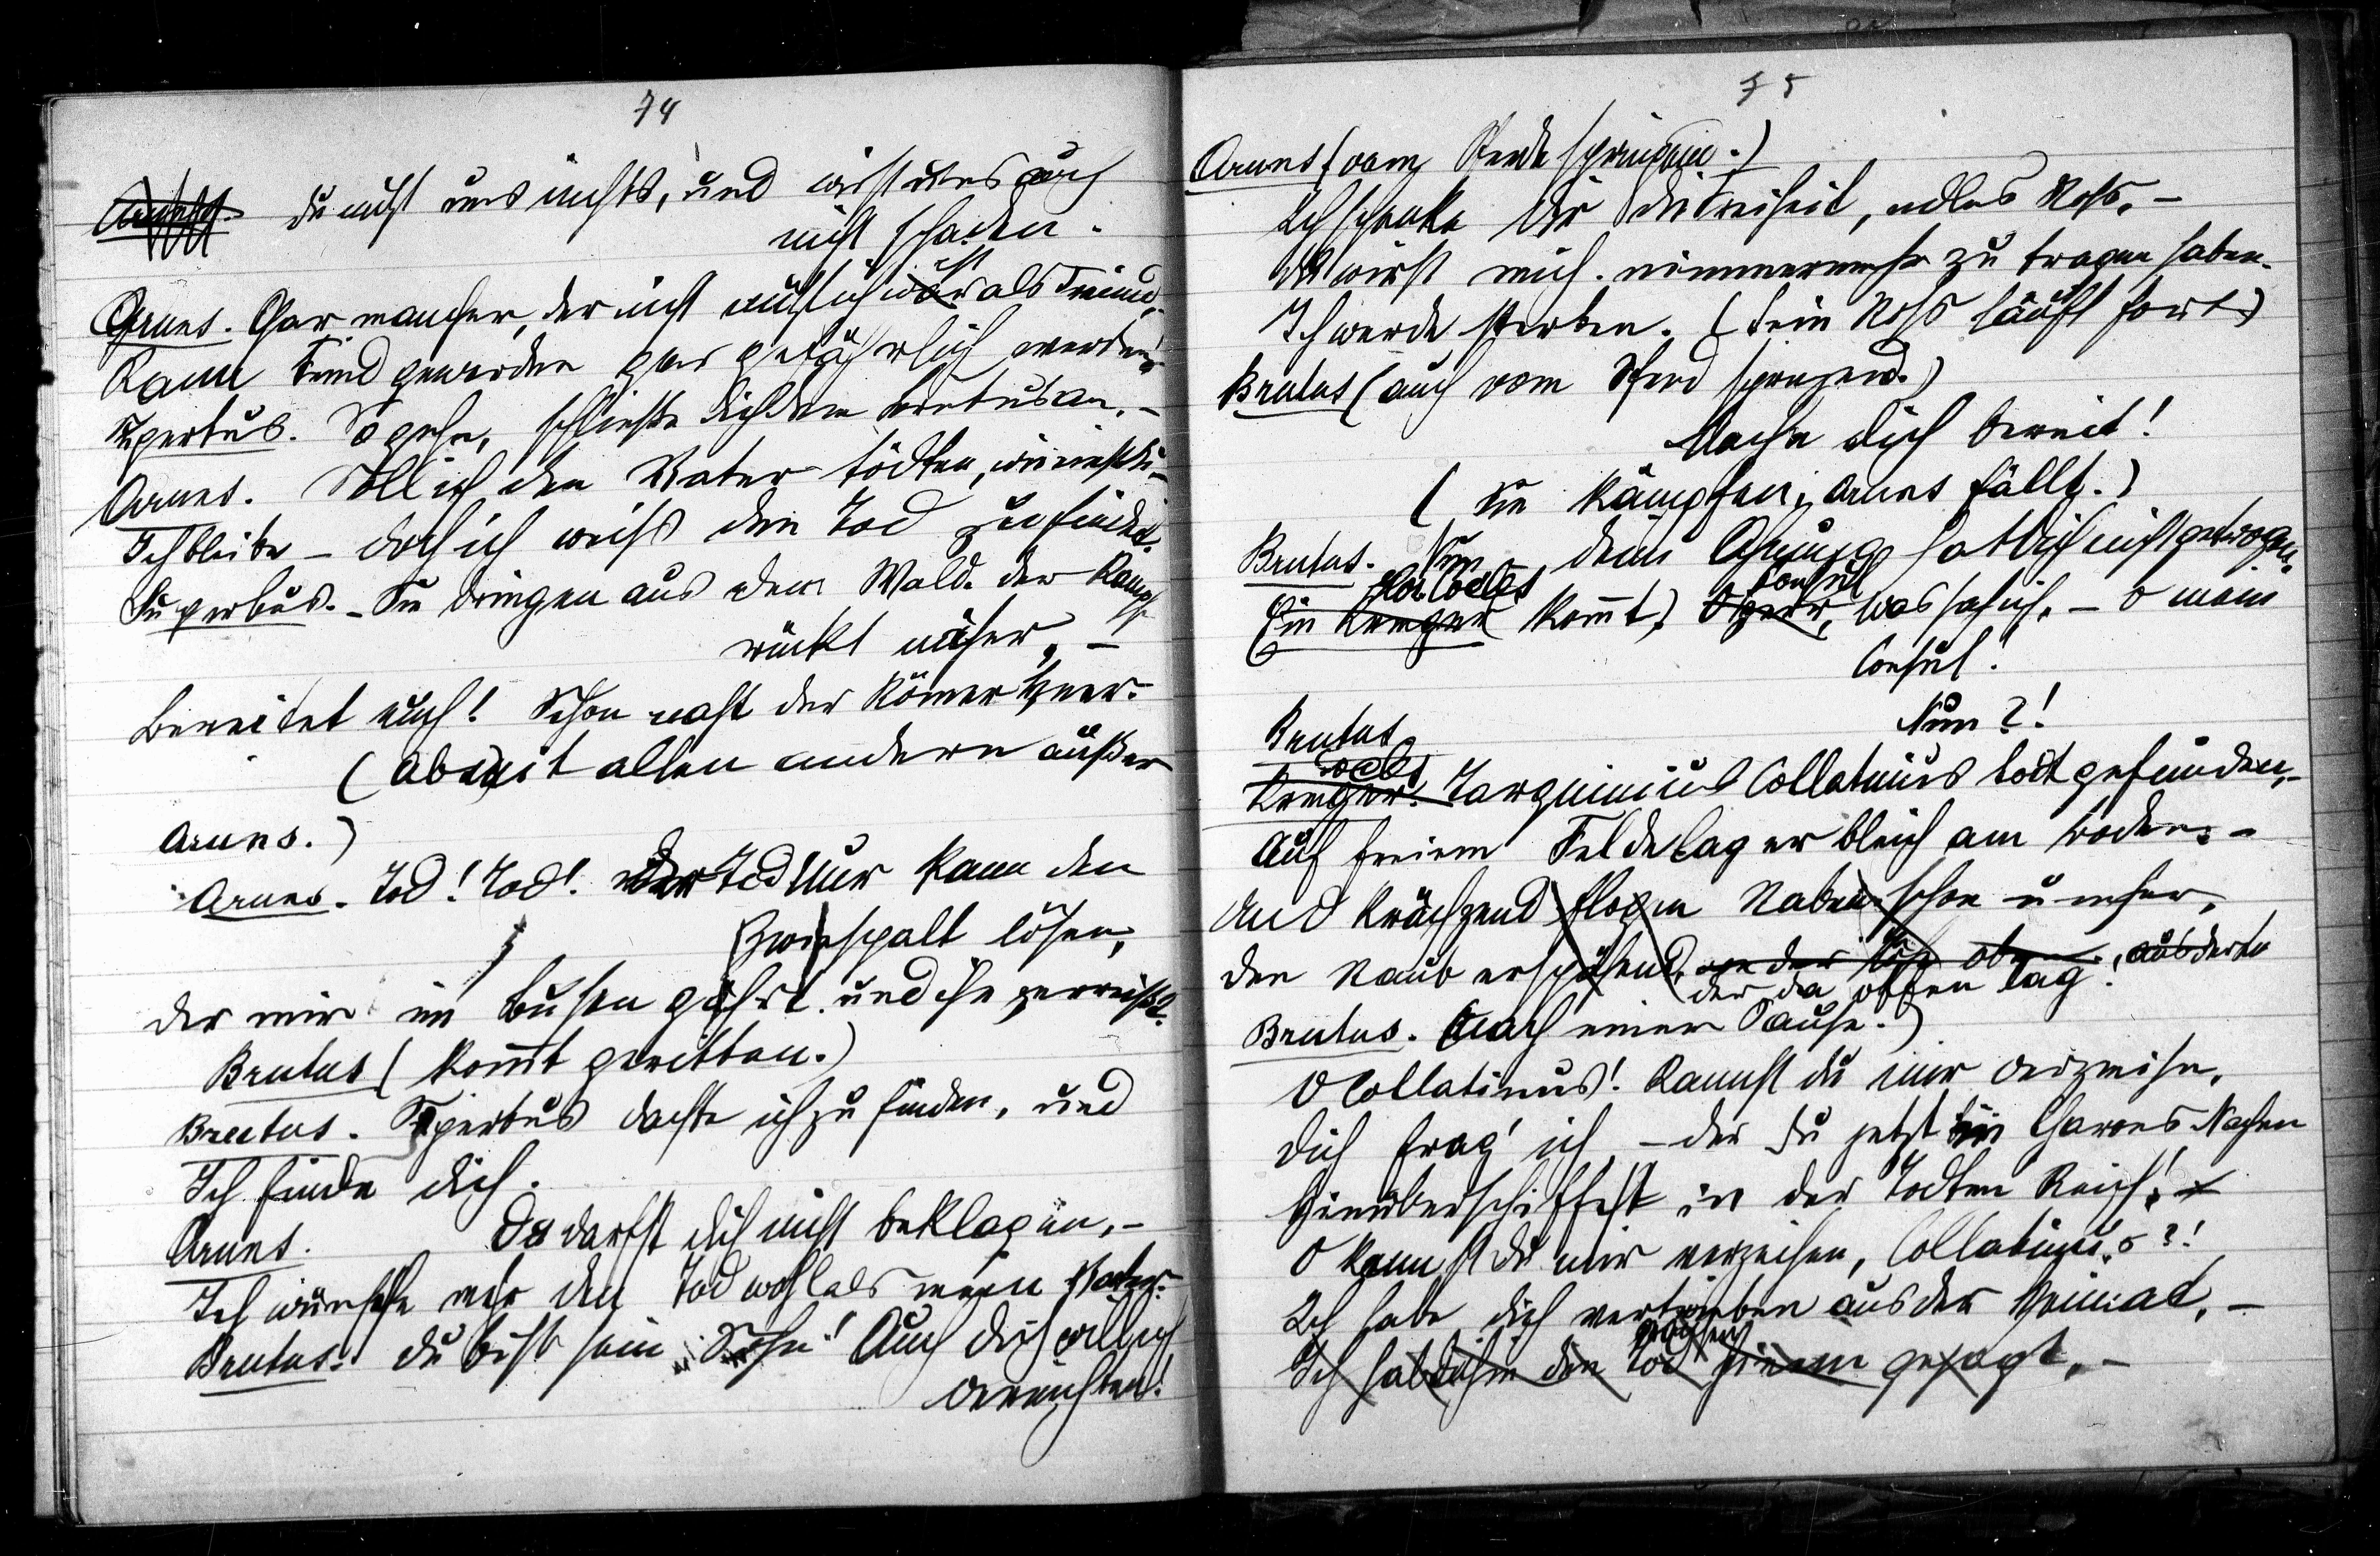 74
du nützt uns nichts, und wirst uns auch
nicht schaden.
Aruns. Gar mancher, der nicht nützlich ist als Freund,
Kann Feind geworden gar gefährlich werden!
Superbus. So gehe, schließe dich dem Brutus an. –
Aruns. Soll ich den Vater tödten, wünschst du –
Ich bleibe – doch ich weiß den Tod zu finden.
Superbus. – Sie dringen aus dem Wald. der Kampf
rückt näher, –
Bereitet euch! Schon naht der Römer Heer.
(Ab mit allen andern außer
Aruns.)
Aruns. Tod! Tod! der Tod nur kann den
Zwiespalt lösen,
der mir im Busen gährt und ihn zerreißt.
Brutus (kommt geritten.)
Brutus. Superbus dachte ich zu finden, und
Ich finde dich.
Aruns. Du darfst dich nicht beklagen, –
Ich wünsche mehr den Tod wohl als mein Vater.
Brutus. du bist sein Sohn! Auch dich will ich
vernichten!
75
Aruns (vom Pferde springend.)
Ich schenke dir die Freiheit, edles Roß, –
du wirst mich nimmermehr zu tragen haben.
Ich werde sterben. (sein Roß läuft fort)
Brutus (auch vom Pferd springend.)
Mache dich bereit!
(Sie kämpfen, Aruns fällt.)
Brutus. Nun, dein Ahnung hat dich nicht getrogen.
Hor. Cocles Consul
(Ein Krieger kommt) O Herr, was sah ich, – O mein
Consul!
Brutus Nun?!
Cocles
Krieger. Tarquinius Collatinus todt gefunden, –
Auf freiem Felde lag er bleich am Boden –
Und krächzend flogen Raben schon umher,
den Raub erspähend,
der da offen lag.
Brutus. (nach einer Pause.)
O Collatinus! Kannst du mir verzeihn,
dich frag' ich, – der du jetzt in Charons Nachen
Hinüberschiffest in der Todten Reich! –
O kannst du mir verzeihen, Collatinus?!
Ich habe dich vertrieben aus der Heimat, –
Ich hab ihn in den Tod gejagt, –